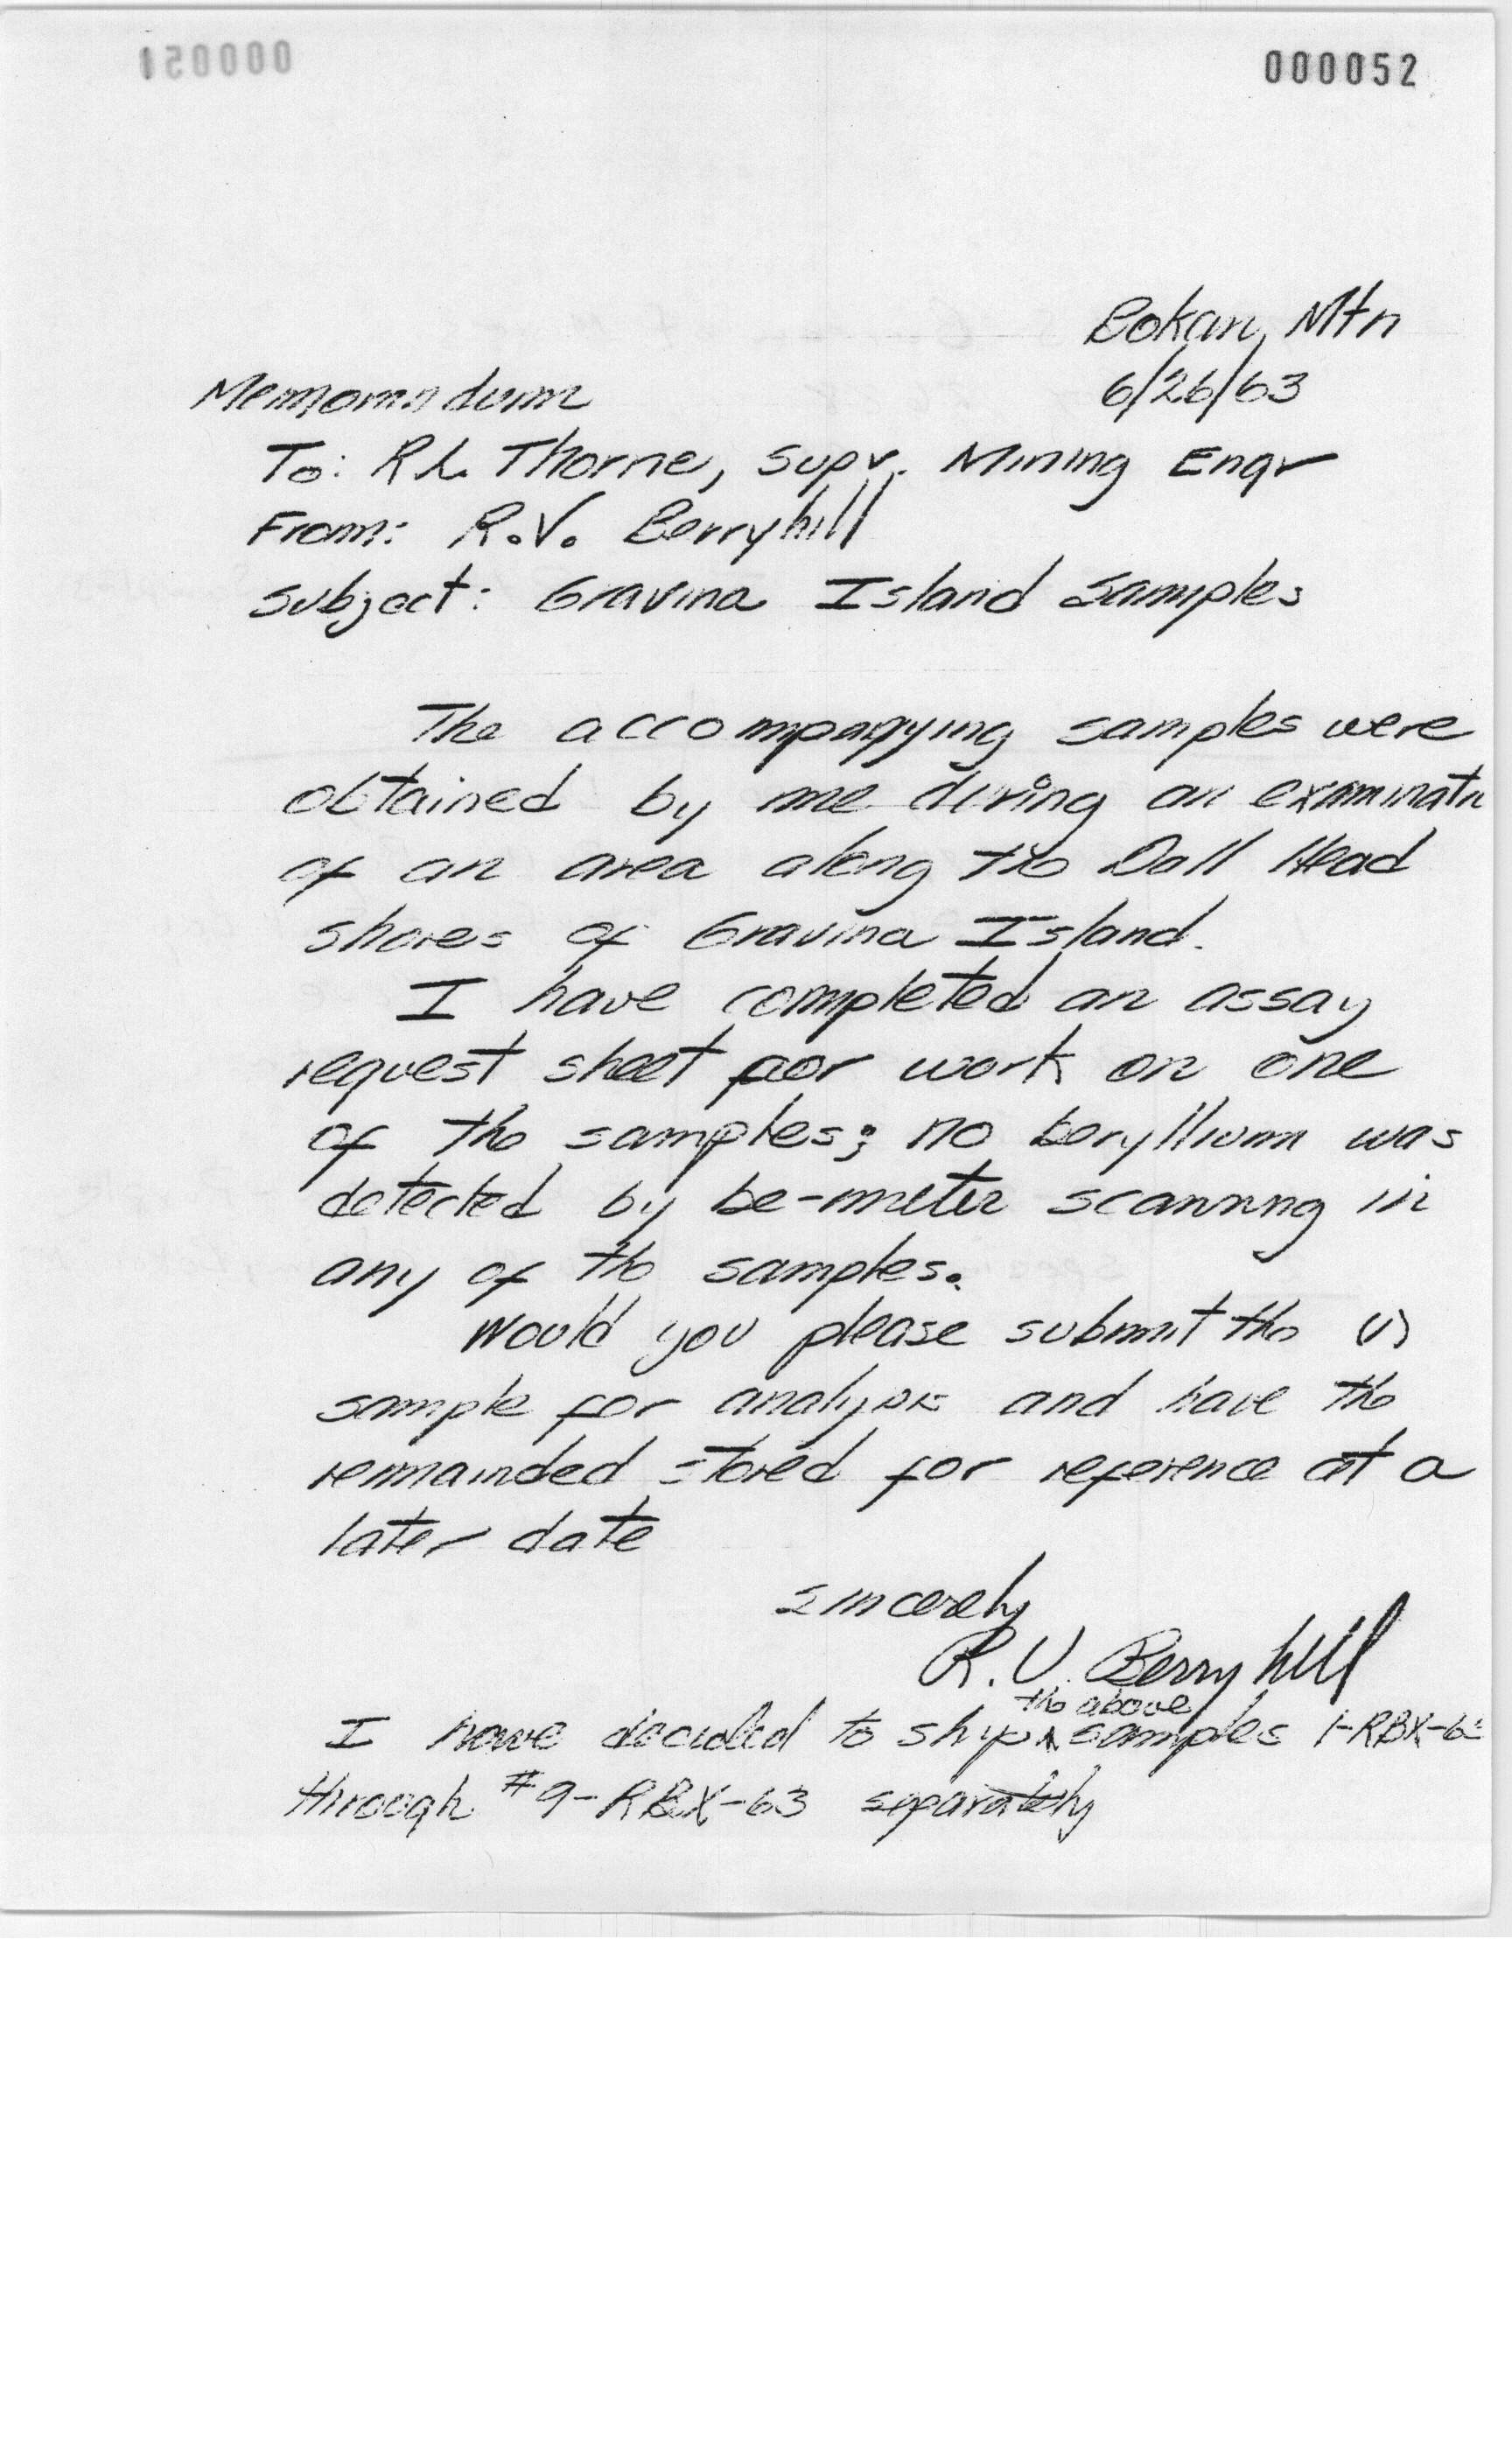 000051
000052
Bokan, Mtn
6/26/63
Memorandum
To: R L. Thorne, Supv. Mining Engr
From: R.V. Berryhill
Subject: Gravina Island Samples
The accompanying samples were
obtained by me during an examinatn
of an area along the Dall Head
shores of Gravina Island.
I have completed an assay
request sheet for work on one
of the samples; no beryllium was
detected by be-meter scanning in
any of the samples.
Would you please submit the (1)
sample for analysis and have the
remainded stored for reference at a
later date
Sincerely
R.V. Berryhill
I have decided to ship the above samples 1-RBX-63
through #9-RBX-63 separately